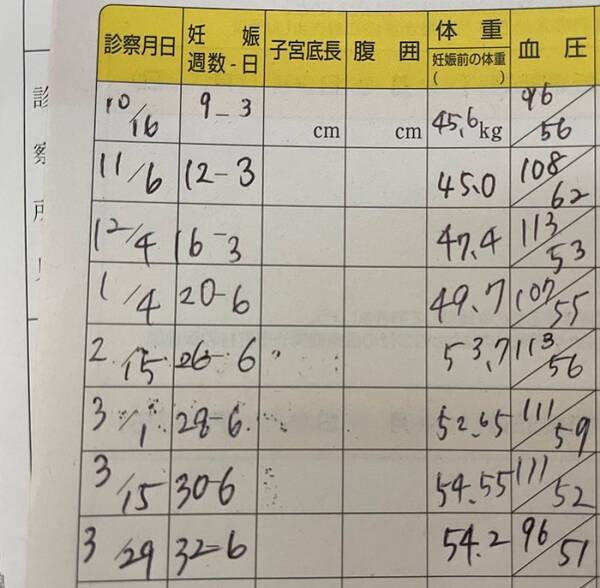 診察月日 妊娠週数-日 子宮底長 腹囲 体重 妊娠前の体重( ) 血圧
10/16 9-3 cm cm 45.6kg 96/56
11/6 12-3 45.0 108/62
12/4 16-3 47.4 113/53
1/4 20-6 49.7 107/55
2/15 26-6 53.7 113/56
3/1 28-6 52.65 111/59
3/15 30-6 54.55 111/52
3/29 32-6 54.2 96/51
診察所